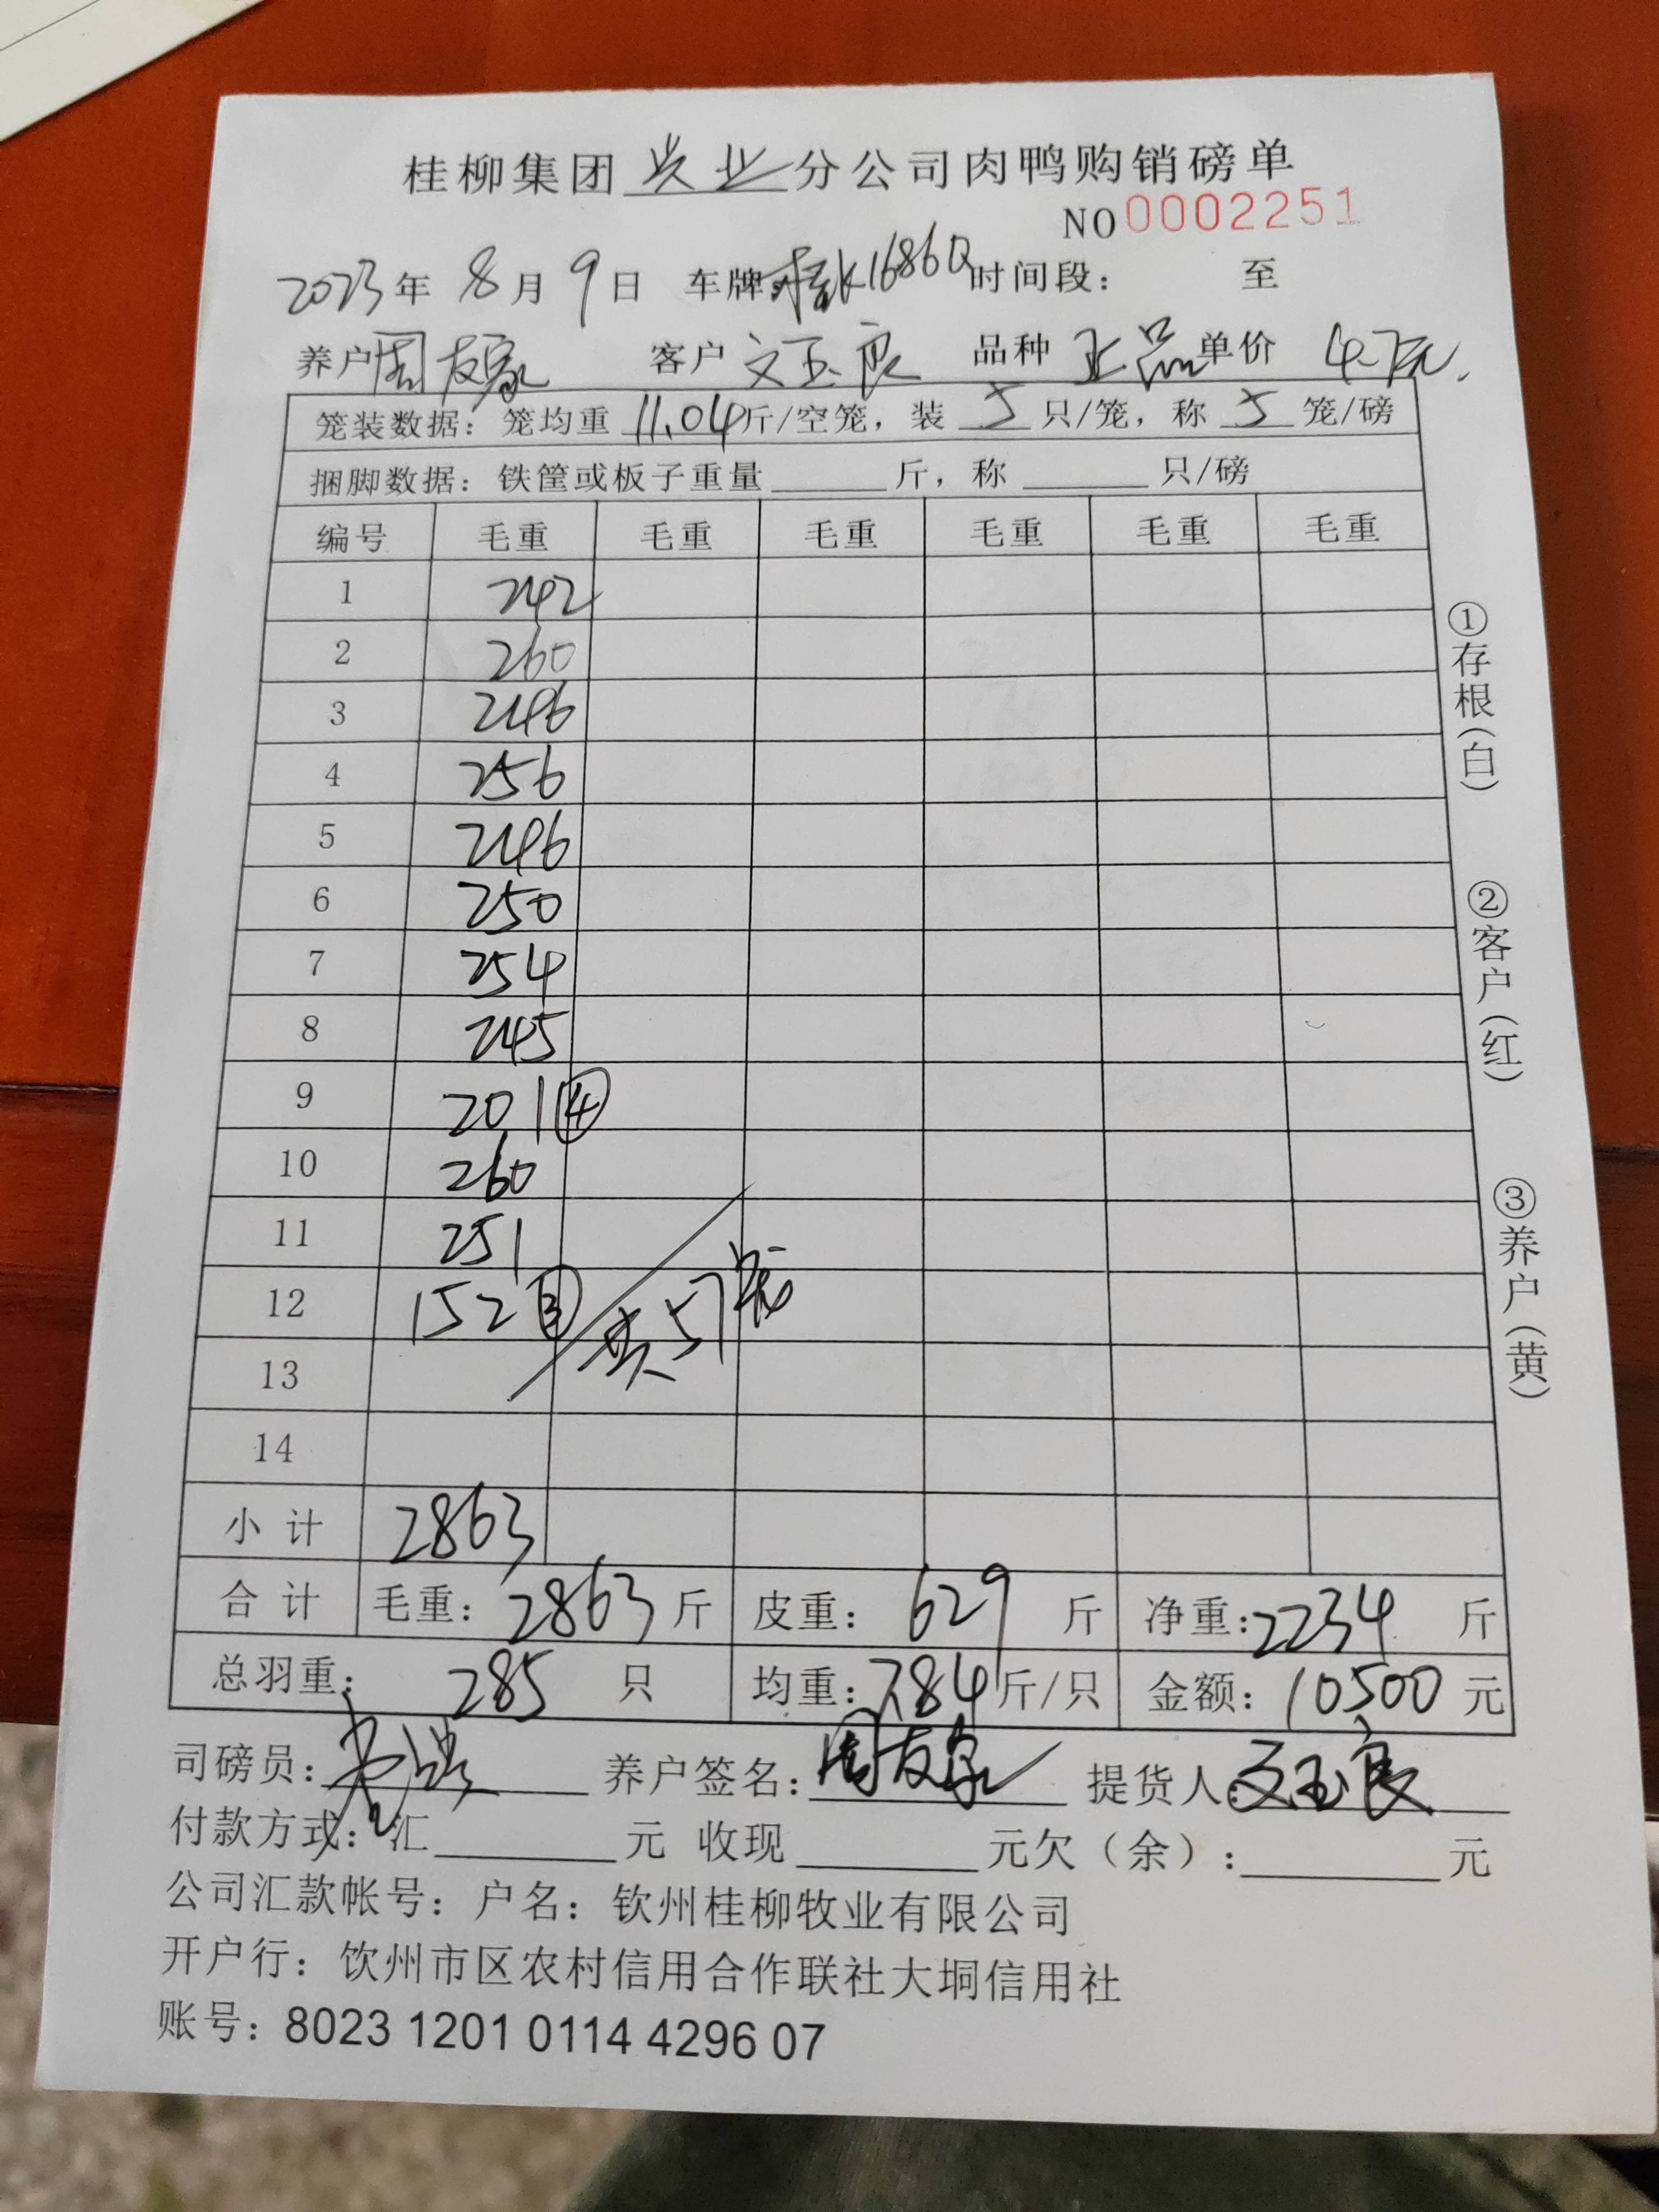 桂柳集团兴业分公司肉鸭购销磅单
NO 0002251
2023年 8月 9日 车牌:桂K1686Q 时间段: 至
养户周友家 客户 文玉良 品种 正品 单价 4.7元.
笼装数据: 笼均重 11.04斤/空笼, 装 5 只/笼, 称 5 笼/磅
捆脚数据: 铁筐或板子重量 斤, 称 只/磅
编号 毛重 毛重 毛重 毛重 毛重 毛重
1 242
2 260
3 246
4 256
5 246
6 250
7 254
8 245
9 201 ④
10 260
11 251
12 152 ③ 共57笼
13
14
小计 2863
合计 毛重: 2863斤 皮重: 629 斤 净重: 2234 斤
总羽重: 285 只 均重: 7.84斤/只 金额: 10500 元
司磅员: 养户签名: 周友家 提货人: 文玉良
付款方式: 汇 元 收现 元欠(余): 元
公司汇款帐号: 户名: 钦州桂柳牧业有限公司
开户行: 饮州市区农村信用合作联社大垌信用社
账号: 8023 1201 0114 4296 07
①存根(白) ②客户(红) ③养户(黄)